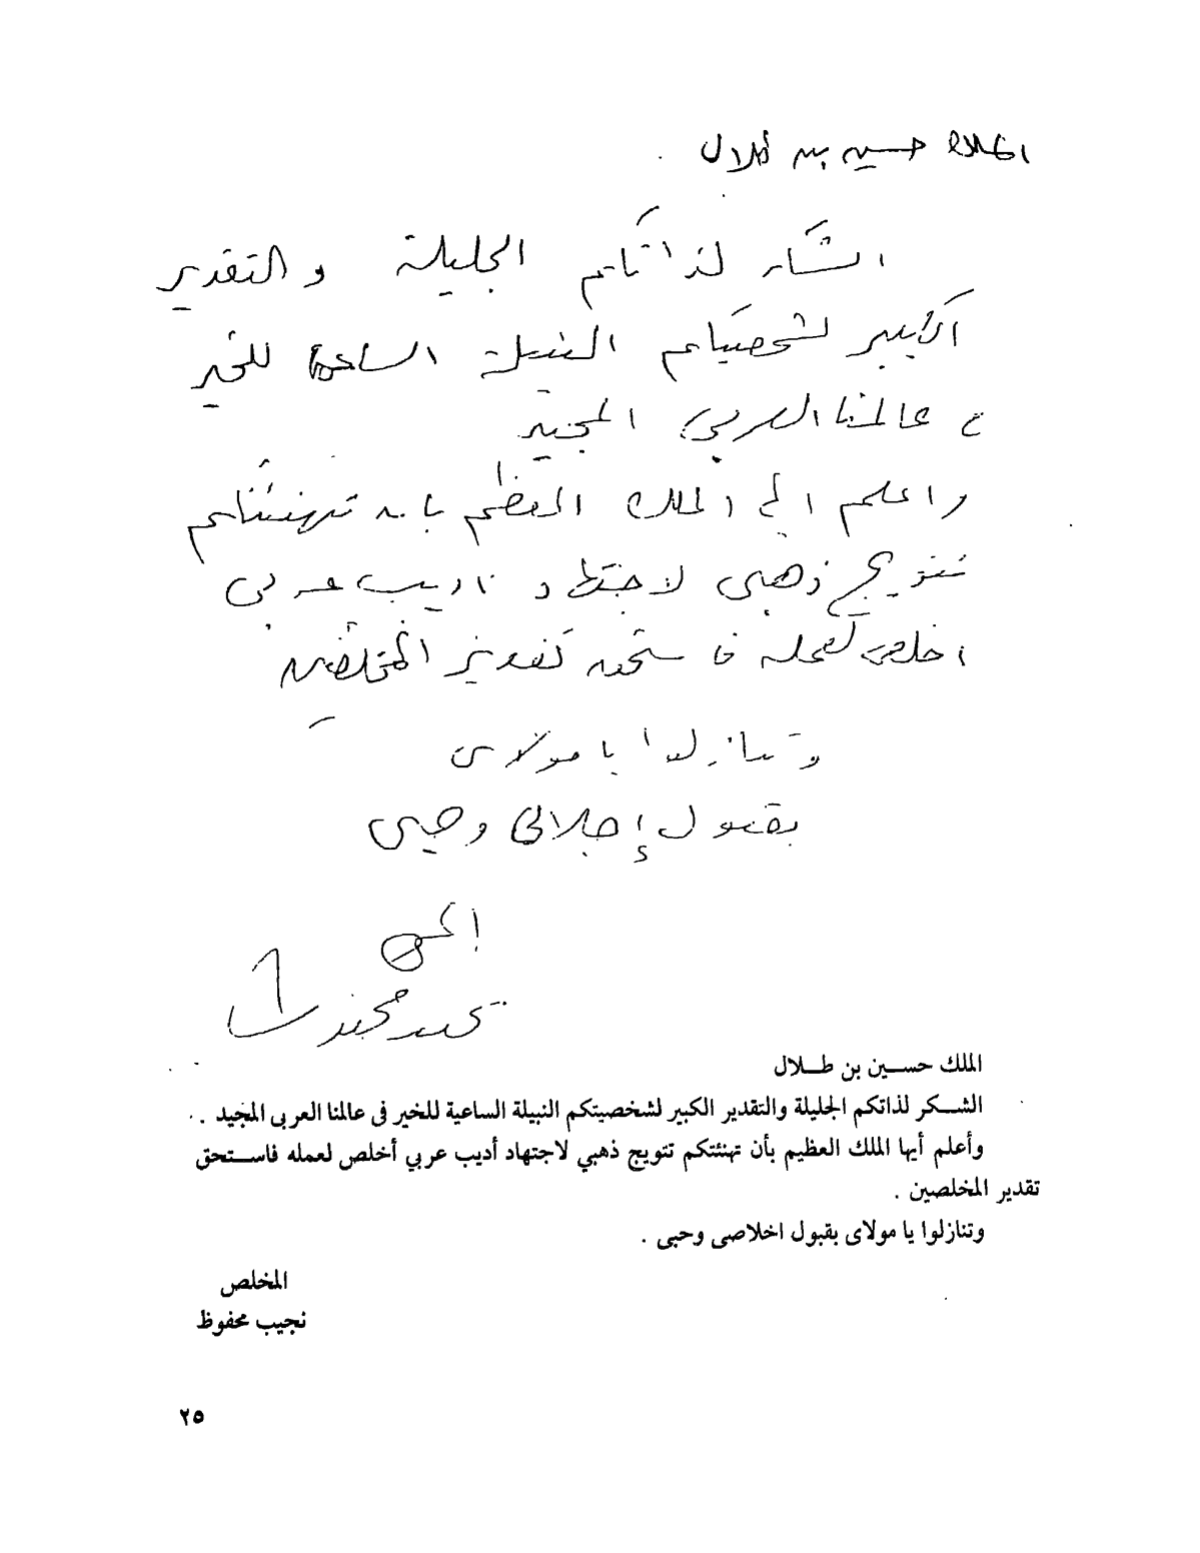 الملك حسين بن طلال
الشكر لذاتكم الجليلة والتقدير
الكبير لشخصيتكم النبيلة الساعية للخير
في عالمنا العربي المجيد
واعلم ايها الملك العظيم بان تهنئتكم
تتويج ذهبى لاجتهاد اديب عربى
اخلص لعمله فاستحق تقدير المخلصين
وتنازلوا يا مولاى
بقبول إجلالى وحبى
المخلص
الملك حسين بن طلال
الشكر لذاتكم الجليلة والتقدير الكبير لشخصيتكم النبيلة الساعية للخير فى عالمنا العربى المجيد .
وأعلم أيها الملك العظيم بأن تهنئتكم تتويج ذهبي لاجتهاد أديب عربي أخلص لعمله فاستحق
تقدير المخلصين .
وتنازلوا يا مولاى بقبول اخلاصى وحبى .
المخلص
نجيب محفوظ
٢٥